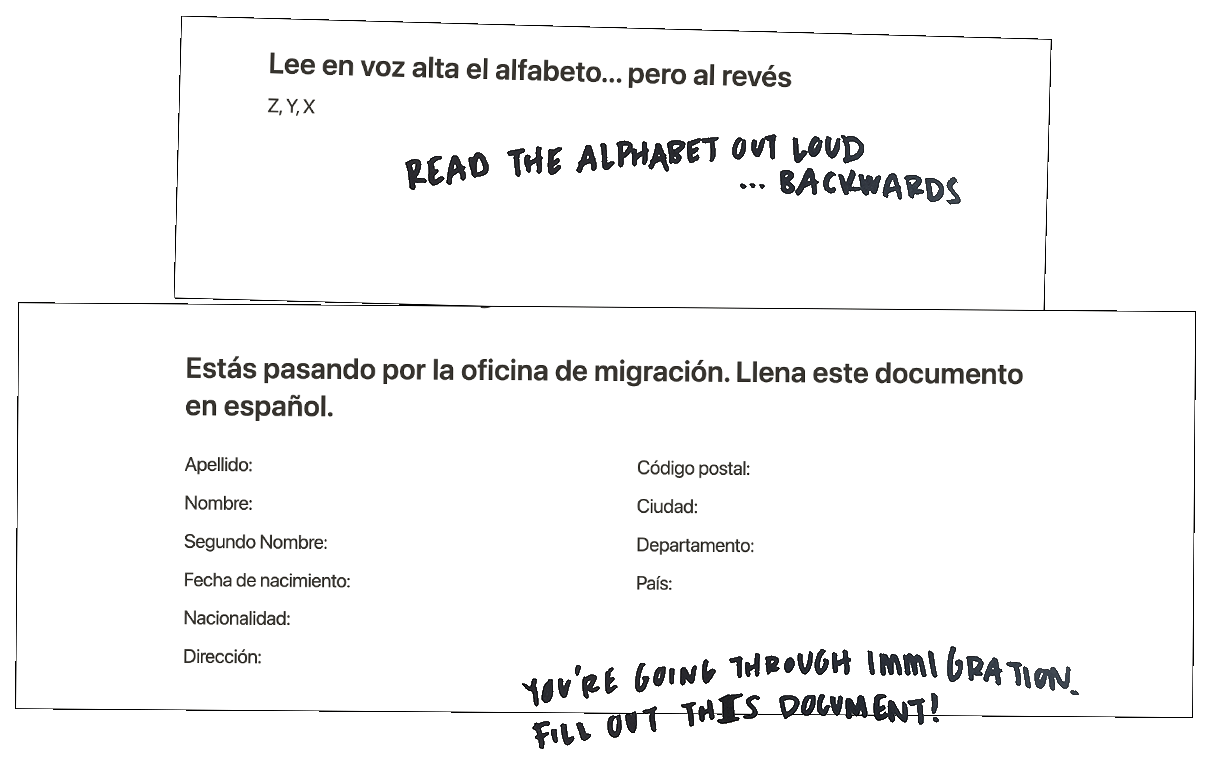 Lee en voz alta el alfabeto... pero al revés
Z, Y, X
READ THE ALPHABET OUT LOUD
... BACKWARDS
Estás pasando por la oficina de migración. Llena este documento
en español.
Apellido:
Nombre:
Segundo Nombre:
Fecha de nacimiento:
Nacionalidad:
Dirección:
Código postal:
Ciudad:
Departamento:
País:
YOU'RE GOING THROUGH IMMIGRATION.
FILL OUT THIS DOCUMENT!